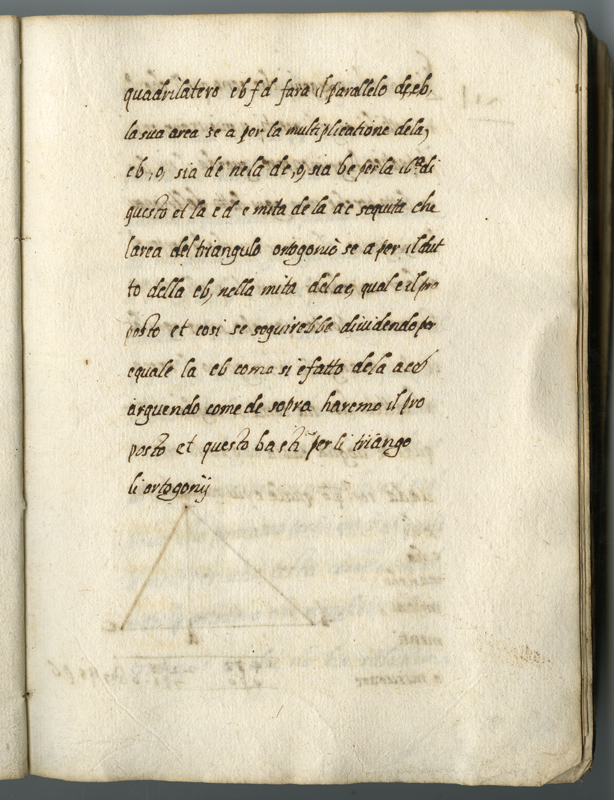 quadrilatero ebfd fara il parallelo de,eb,
la sua area se a per la multiplicatione dela,
eb, o, sia de nela de, o, sia be per la di
questo et la ed e mita de la ae sequita che
larea del triangulo ortogonio se a per il dut
to della eb, nella mita del ae, qual e il pro
posto et cosi se seguirebbe dividendo per
equale la eb come si e fatto dela ae et
arguendo come de sopra haremo il pro
posto et questo basti per li triango
li ortogonij